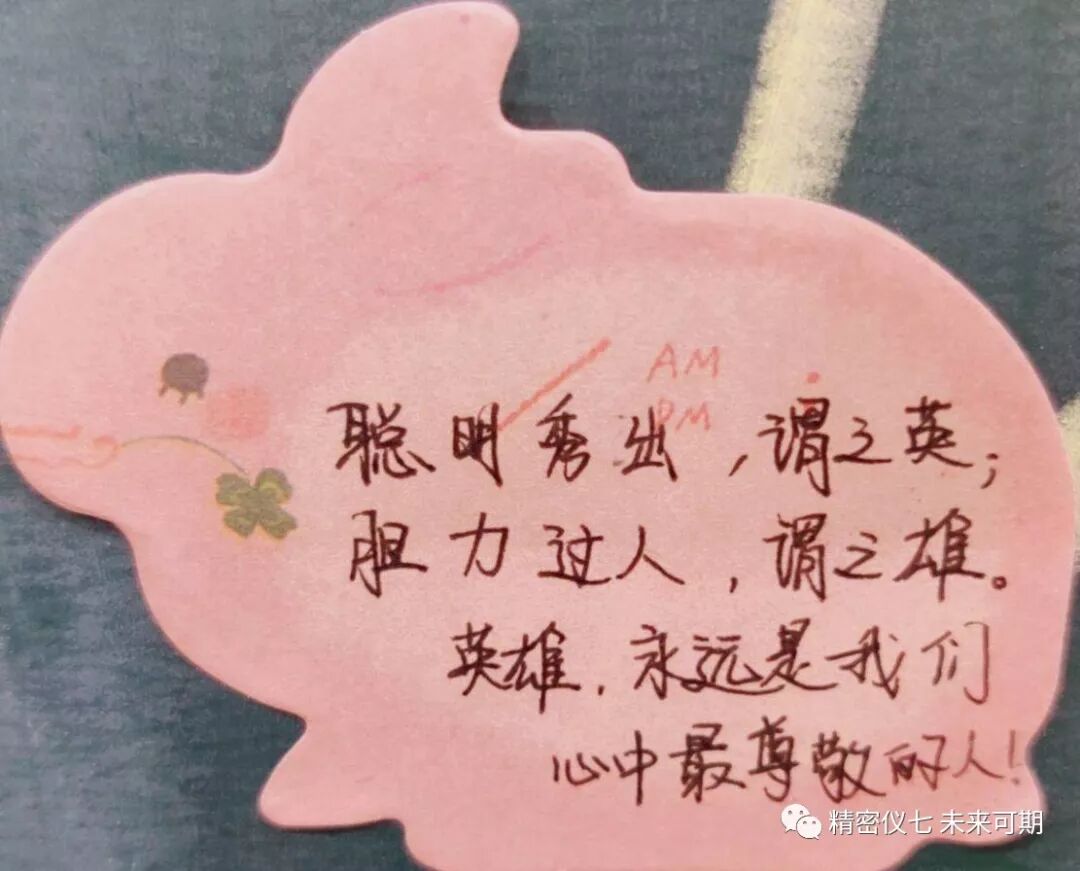 AM
PM
聪明秀出，谓之英；
胆力过人，谓之雄。
英雄，永远是我们
心中最尊敬的人！
精密仪七 未来可期